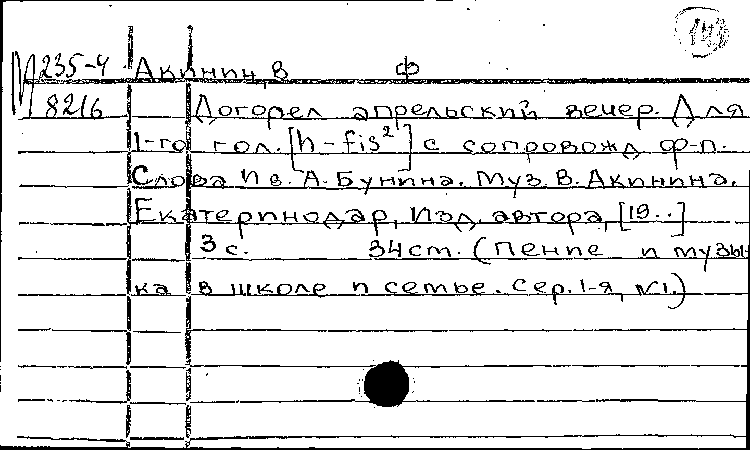 143
М 235-4 Акинин, В Ф
8216 Догорел апрельский вечер. Для
1-го гол. [h-fis²] с сопровожд ф-п.
Слова Ив. А. Бунина. Муз. В. Акинина.
Екатеринодар, Изд. автора, [19..]
3 с. 34 ст. (Пение и музы-
ка в школе и семье. Сер. 1-я, №1.)